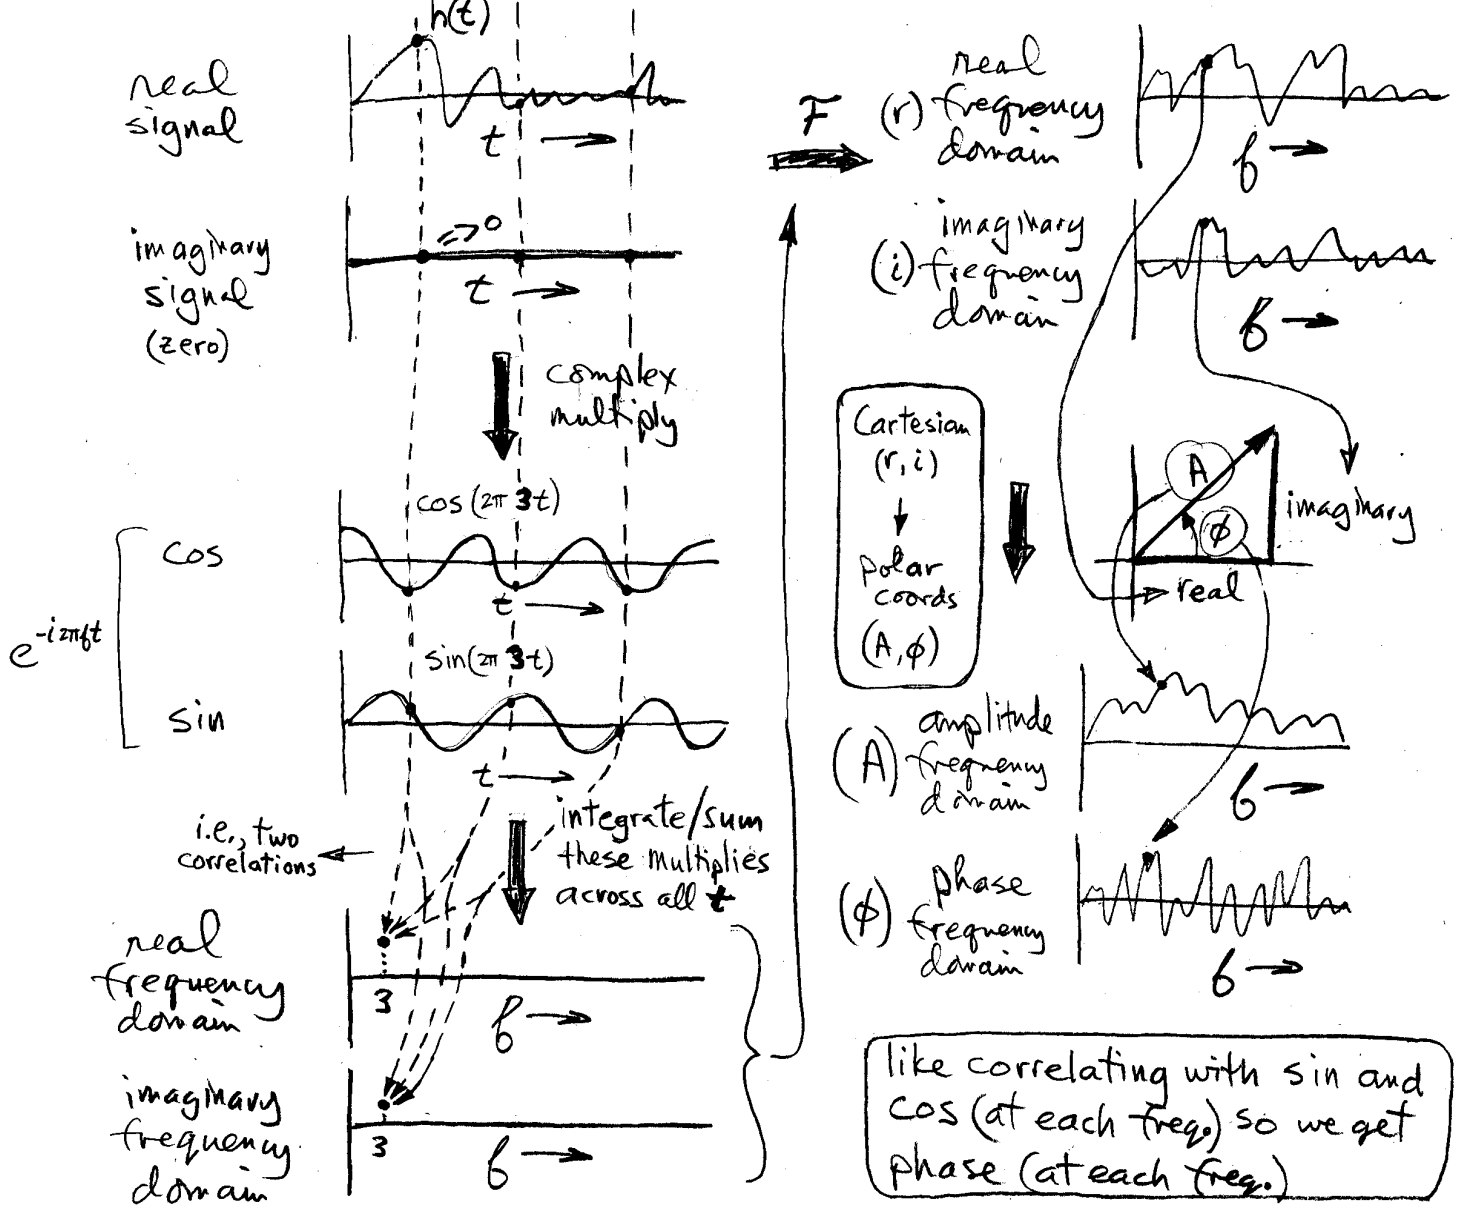 h(t)
real
signal
t
imaginary
signal
(zero)
=> 0
t
complex
multiply
cos(2π 3t)
cos
t
e^-i2πft
sin(2π 3t)
sin
t
i.e., two
correlations
integrate/sum
these multiplies
across all t
real
frequency
domain
3
f
imaginary
frequency
domain
3
f
F
real
(r) frequency
domain
f
imaginary
(i) frequency
domain
f
Cartesian
(r, i)
polar
coords
(A, ϕ)
A
ϕ
imaginary
real
amplitude
(A) frequency
domain
f
phase
(ϕ) frequency
domain
f
like correlating with sin and
cos (at each freq.) so we get
phase (at each freq.)